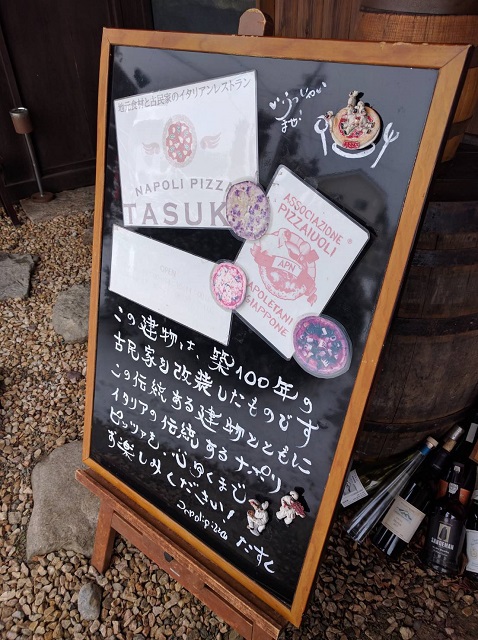 地元食材と古民家のイタリアンレストラン
NAPOLI PIZZA
TASUK
いらっしゃい
ませ!
ASSOCIAZIONE
PIZZAIUOLI
APN
NAPOLETANI
GIAPPONE
OPEN
この建物は、築100年の
古民家を改装したものです
この伝統ある建物とともに
イタリアの伝統あるナポリ
ピッツァを、心ゆくまで
お楽しみください!
Napolipizza たすく
SANDEMAN